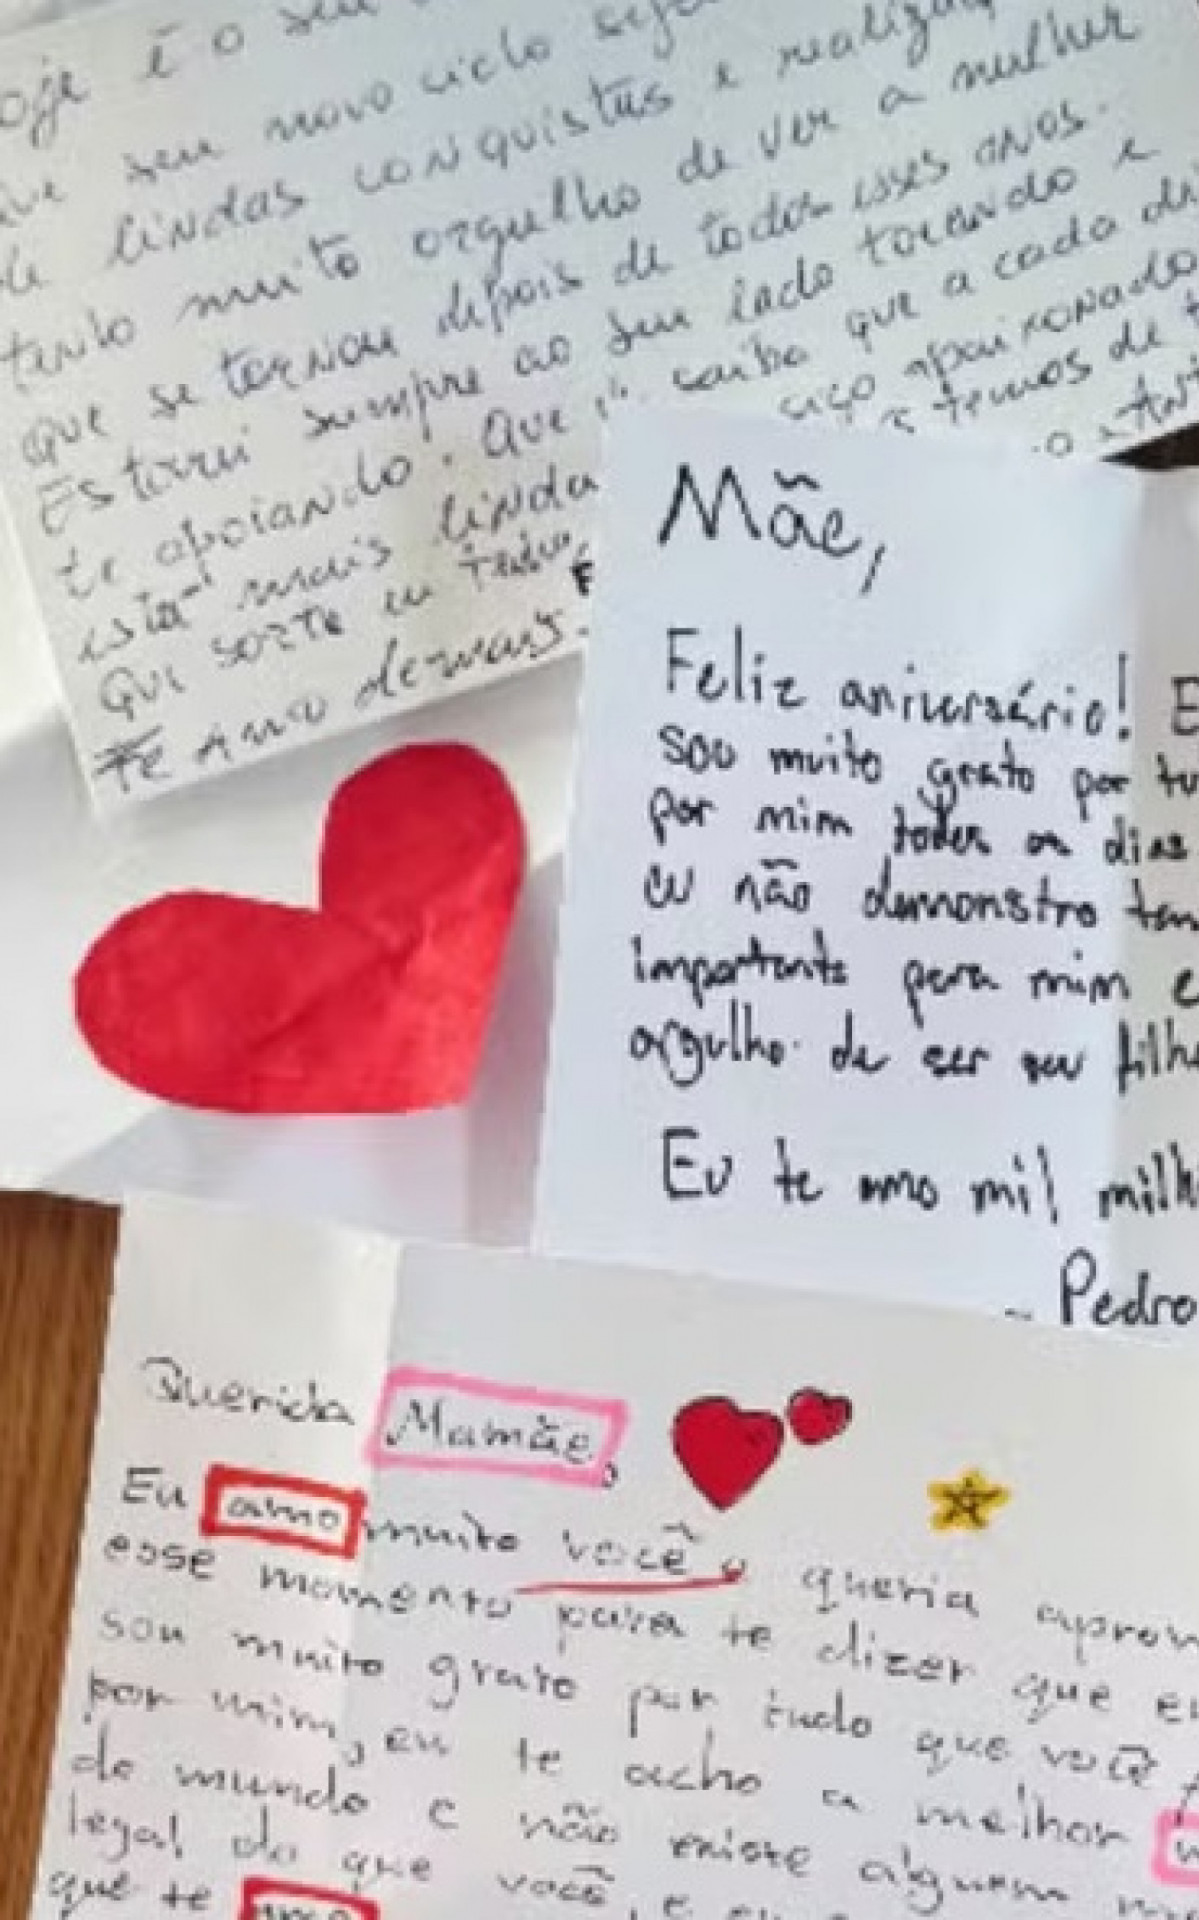 oje é o seu
seu novo ciclo seja
de lindas conquistas e realizaç
tenho muito orgulho de ver a mulher
que se tornou depois de todos esses anos.
Estarei sempre ao seu lado torcendo e
te apoiando. Que saiba que a cada di
está mais linda apaixonado
Que sorte eu temos de t
Te amo demais.
Mãe,
Feliz aniversário! E
sou muito grato por tu
por mim todos os dias
eu não demonstro tan
importante para mim e
orgulho de ser seu filho
Eu te amo mil milh
- Pedro
Querida Mamãe,
Eu amo muito você e queria aprov
esse momento para te dizer que eu
sou muito grato por tudo que você f
por mim, eu te acho a melhor m
do mundo e não existe alguem m
legal do que você, e eu
que te amo